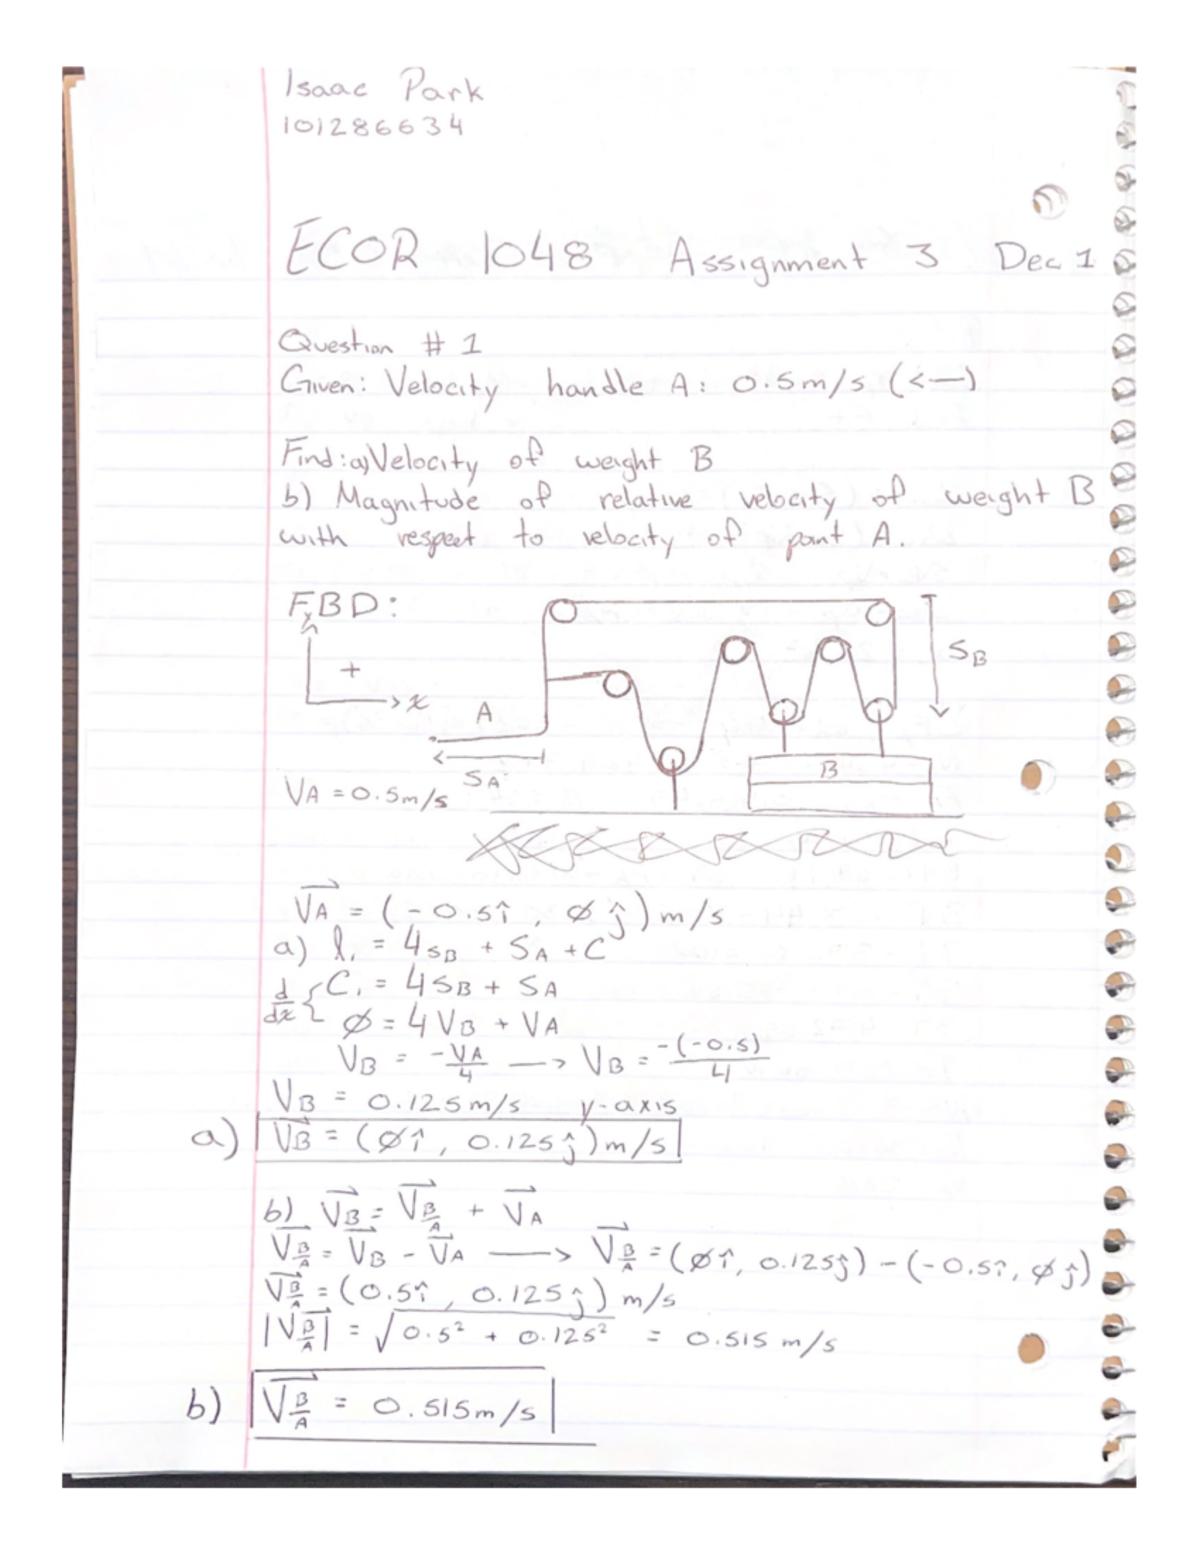 Isaac Park
101286634
ECOR 1048 Assignment 3 Dec 1
Question # 1
Given: Velocity handle A: 0.5m/s (<—)
Find: a) Velocity of weight B
b) Magnitude of relative velocity of weight B
with respect to velocity of point A.
FBD:
+
x
A
SA
SB
B
VA = 0.5m/s
VA = (-0.5î, ø ĵ) m/s
a) l₁ = 4SB + SA + C
d/dx { C₁ = 4SB + SA
ø = 4VB + VA
VB = -VA/4 —> VB = -(-0.5)/4
VB = 0.125m/s y-axis
a) VB = (øî, 0.125ĵ) m/s
b) VB = VB/A + VA
VB/A = VB - VA —> VB/A = (øî, 0.125ĵ) - (-0.5î, øĵ)
VB/A = (0.5î, 0.125ĵ) m/s
|VB/A| = √0.5² + 0.125² = 0.515 m/s
b) VB/A = 0.515m/s